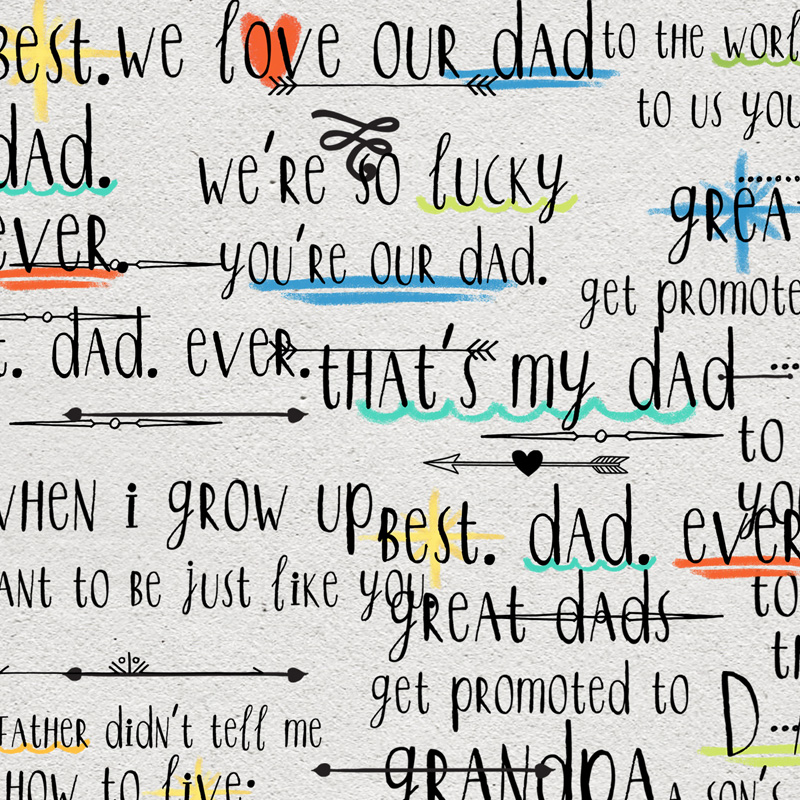 Best.
we love our dad
to the worl
to us you
dad.
we're so lucky
great
ever.
you're our dad.
get promote
t. dad. ever.
that's my dad
to
when i grow up
ant to be just like you.
Best. dad. ever
great dads
to
get promoted to
father didn't tell me
how to live;
grandpa
D
a son's